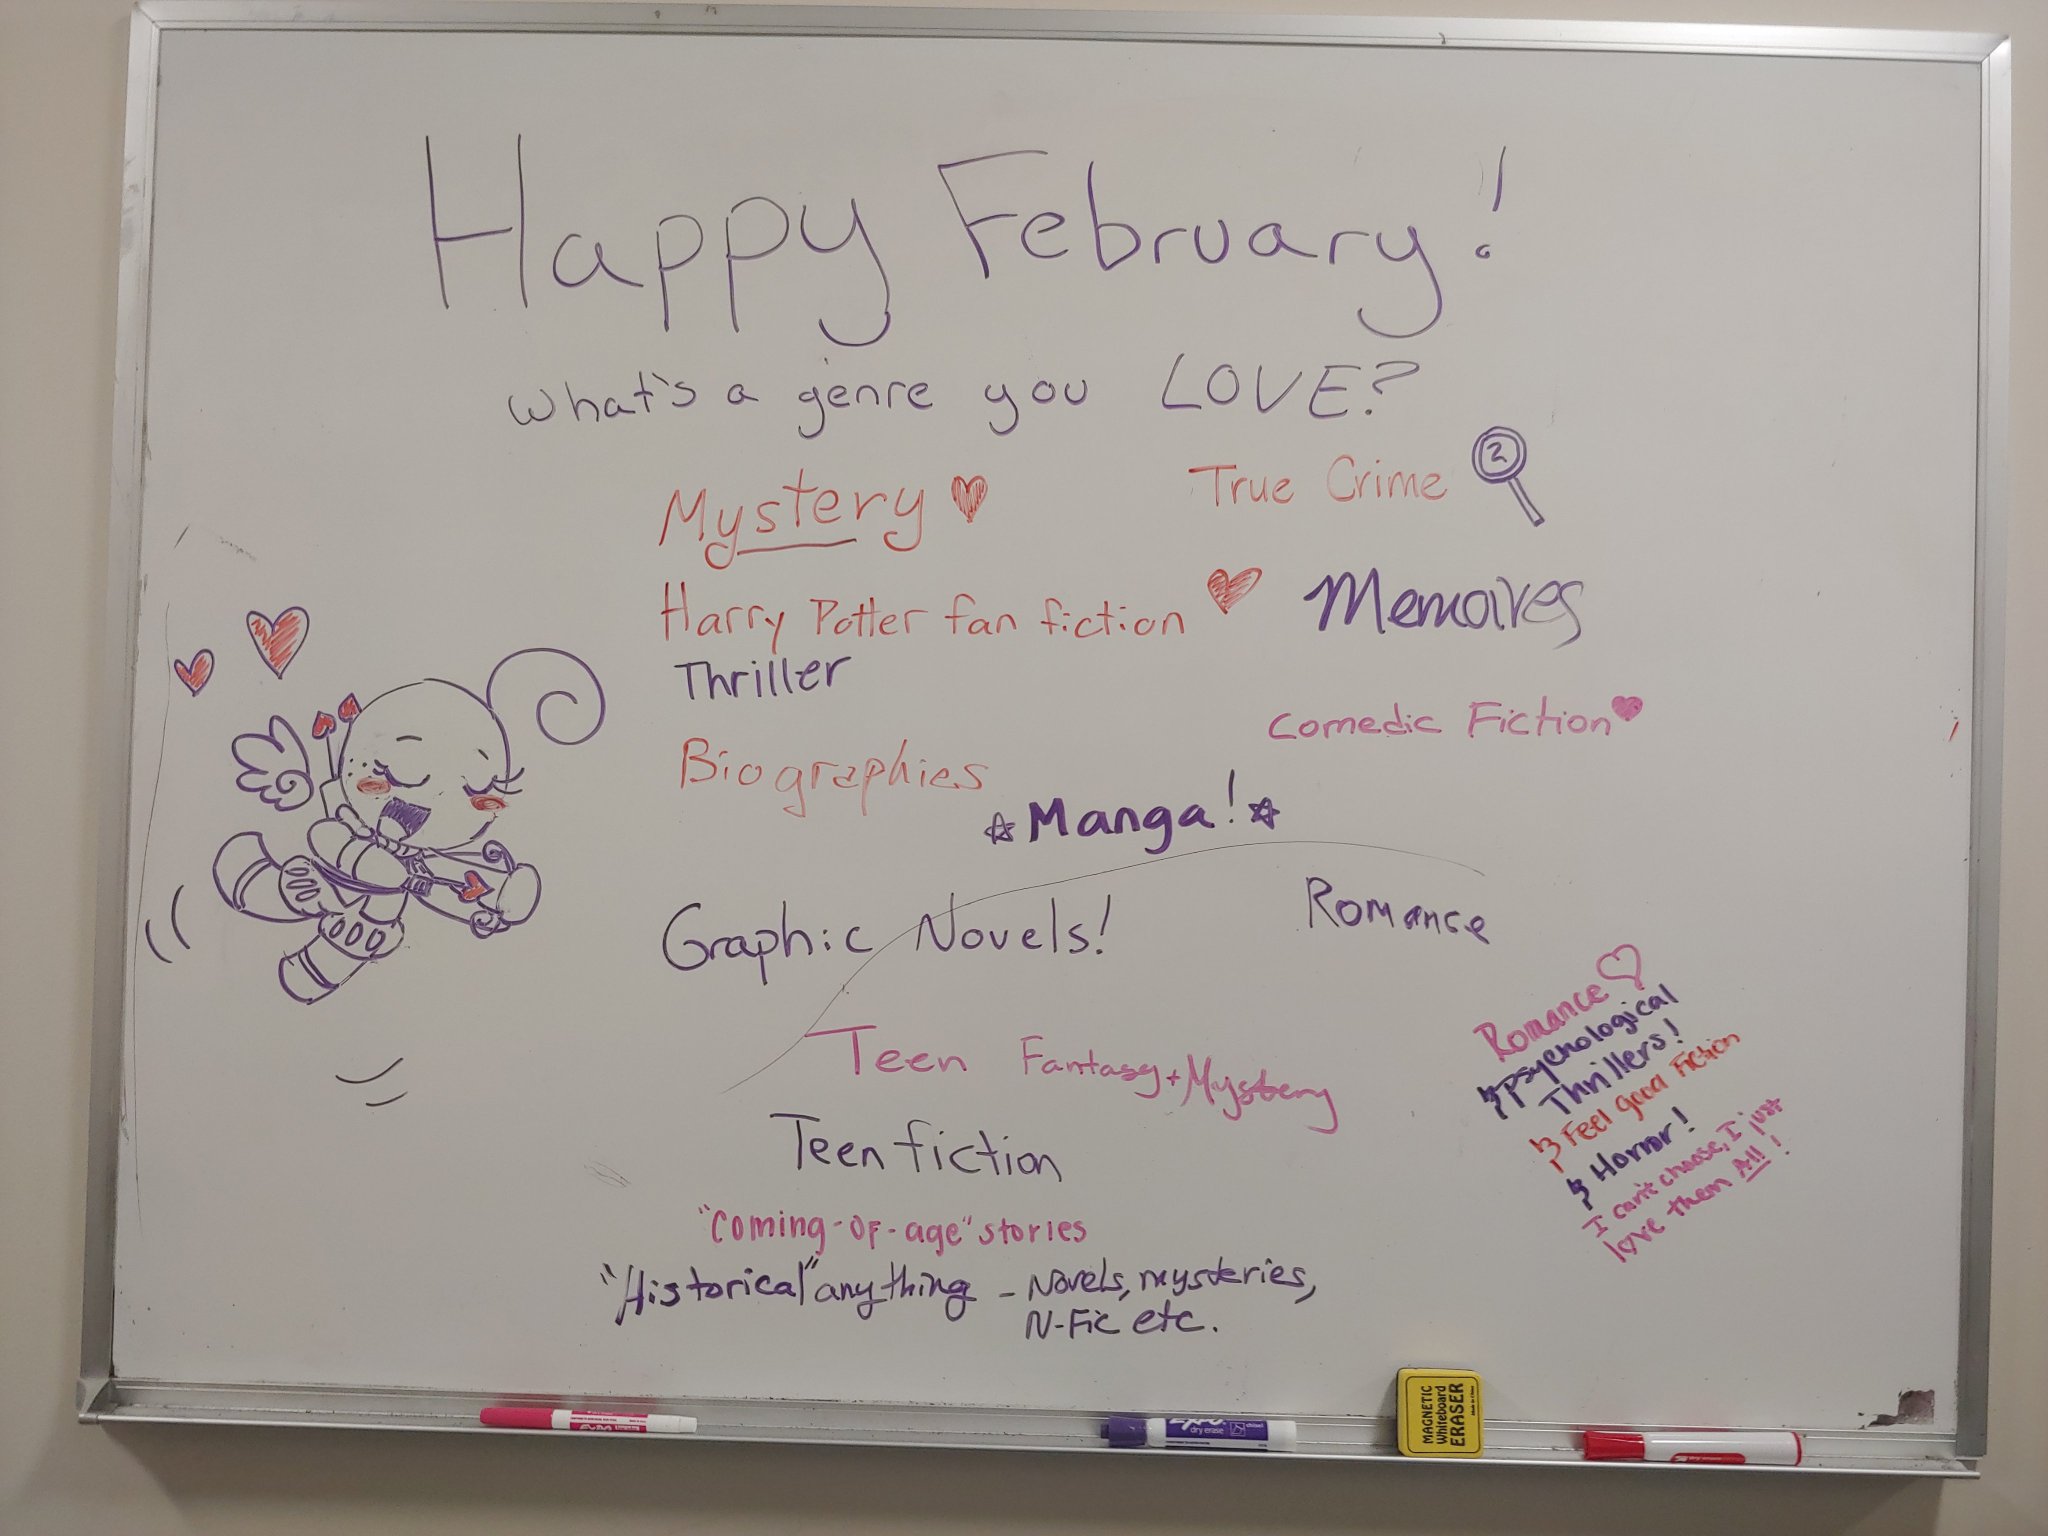 Happy February!
What's a genre you LOVE?
Mystery
True Crime
2
Harry Potter fan fiction
Memoires
Thriller
Comedic Fiction
Biographies
Manga!
Graphic Novels!
Romance
Romance
Psychological
Thrillers!
Feel Good Fiction
Horror!
I can't choose, I just
love them All!
Teen Fantasy + Mystery
Teen fiction
"Coming-of-age" stories
"Historical" anything - Novels, mysteries,
N-Fic etc.
EXPO
EXPO
dry erase
MAGNETIC
Whiteboard
ERASER